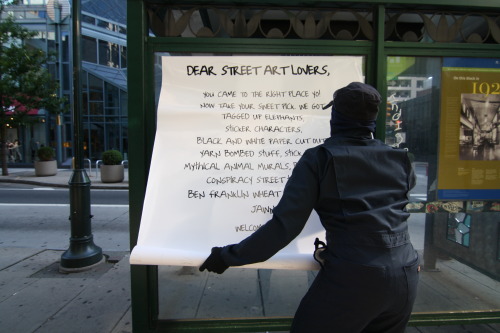 DEAR STREET ART LOVERS,
YOU CAME TO THE RIGHT PLACE YO!
NOW TAKE YOUR SWEET PICK. WE GOT
TAGGED UP ELEPHANTS,
STICKER CHARACTERS,
BLACK AND WHITE PAPER CUT OUT
YARN BOMBED STUFF,
MYTHICAL ANIMAL MURALS,
CONSPIRACY STREET
BEN FRANKLIN WHEAT
192